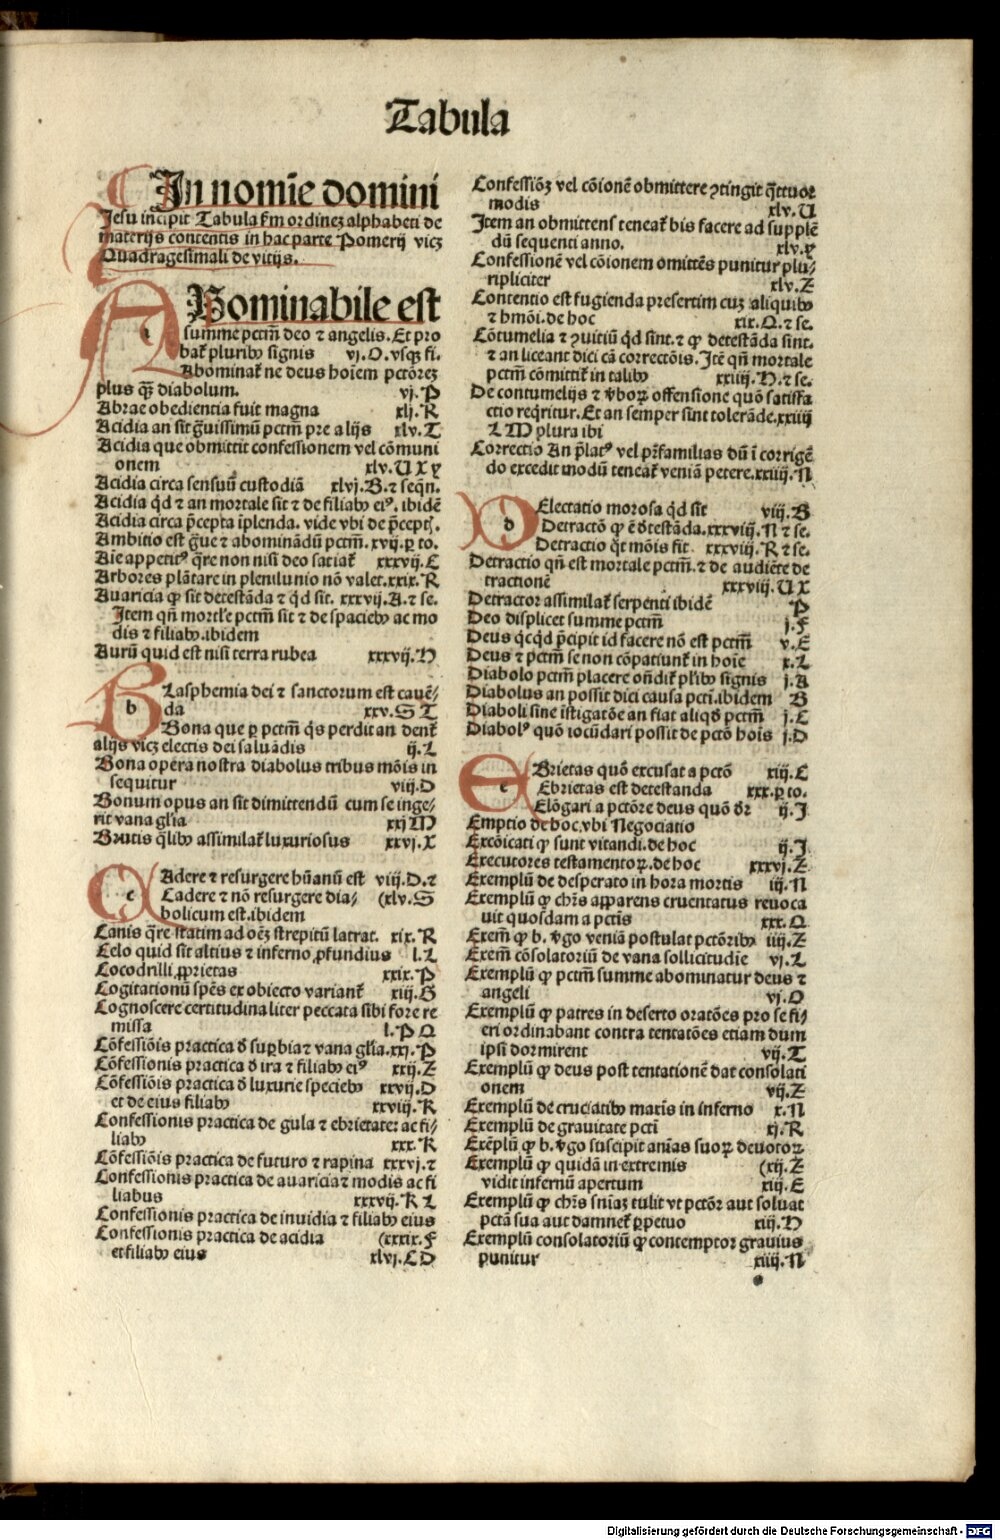 Tabula
In nomīe domini
Jesu incipit Tabula ẜm ordinez alphabeti de
materijs contentis in hac parte Pomerij vicz
Quadragesimali de vitijs.
ABominabile est
summe pctm̄ deo ⁊ angelis. Et pro
bat᷑ pluribꝰ signis vj.O.vsqꝫ fi.
Abominat᷑ ne deus hoīem pctōrez
plus qꝫ diabolum. vj.P
Abrae obedientia fuit magna xlj.R
Acidia an sit g̃uissimū pctm̄ pre alijs xlv.T
Acidia que obmittit confessionem vel cōmuni
onem xlv.U X y
Acidia circa sensuū custodiā xlvj.B.⁊ seqn̄.
Acidia qd̄ ⁊ an mortale sit ⁊ de filiabꝰ eiꝰ. ibidē
Acidia circa p̄cepta īplenda. vide vbi de p̄cept.
Ambitio est g̃ue ⁊ abominādū pctm̄. xvij.ꝑ to.
Aīe appetitꝰ q̄re non nisi deo satiat᷑ xxxvij.C
Arbores plātare in plenilunio nō valet.xxix.R
Avaricia ꝙ sit detestāda ⁊ qd̄ sit. xxxvij.A.⁊ se.
Item qn̄ mortl'e pctm̄ sit ⁊ de speciebꝰ ac mo
dis ⁊ filiabꝰ.ibidem
Aurū quid est nisi terra rubea xxxvij.H
b
BLasphemia dei ⁊ sanctorum est cauē-
da xxv.S T
Bona que ꝑ pctm̄ q̇s perdit an dent᷑
alijs vicz electis dei saluādis ij.L
Bona opera nostra diabolus tribus mōis in
sequitur viij.D
Bonum opus an sit dimittendū cum se inge-
rit vana gl'ia xxj M
Brutis q̇libꝰ assimilat᷑ luxuriosus xxvj.X
c
CAdere ⁊ resurgere hūanū est viij.D.⁊
Cadere ⁊ nō resurgere dia- (xlv.S
bolicum est.ibidem
Canis q̄re statim ad oēz strepitū latrat. xix.R
Celo quid sit altius ⁊ inferno ꝓfundius l.L
Cocodrilli ꝓprietas xxix.P
Cogitationū spēs ex obiecto variant᷑ xiij.G
Cognoscere certitudinaliter peccata sibi fore re
missa l.P Q
Cōfessiōis practica d̄ suꝑbia ⁊ vana gl'ia.xxj.P
Cōfessionis practica d̄ ira ⁊ filiabꝰ eiꝰ xxij.Z
Cōfessiōis practica d̄ luxurie speciebꝰ xxvij.D
et de eius filiabꝰ xxviij.K
Confessionis practica de gula ⁊ ebrietate: ac fi-
liabꝰ xxx.K
Cōfessiōis practica de futuro ⁊ rapina xxxvj.⁊
Confessionis practica de auaricia ⁊ modis ac fi
liabus xxxvij.K L
Confessionis practica de inuidia ⁊ filiabꝰ eius
Confessionis practica de acidia (xxxix.F
et filiabꝰ eius xlvj.C D
Confessiōꝫ vel cōionē obmittere ꝯtingit q̄ttuor
modis xlv.U
Item an obmittens teneat᷑ bis facere ad supplē
dū sequenti anno. xlv.y
Confessionē vel cōionem omittēs punitur plu-
ripliciter xlv.Z
Contentio est fugienda presertim cuꝫ aliquibꝰ
⁊ hmōi.de hoc xix.O.⁊ se.
Cōtumelia ⁊ ꝯuitiū qd̄ sint.⁊ ꝙ detestāda sint.
⁊ an liceant dici cā correctōis. Itē qn̄ mortale
pctm̄ cōmittit᷑ in talibꝰ xxiiij.H.⁊ se.
De contumelijs ⁊ v̄boꝝ offensione quō satisfa
ctio reqrītur. Et an semper sint tolerāde.xxiiij
L M plura ibi
Correctio An p̄latꝰ vel pr̄familias dū ī corrigē
do excedit modū teneat᷑ veniā petere.xxiiij.N
d
DElectatio morosa qd̄ sit viij.B
Detractō ꝙ ē d̄testāda.xxxviij.N ⁊ se.
Detractio q̇t mōis fit xxxviij.R ⁊ se.
Detractio qn̄ est mortale pctm̄.⁊ de audiēte de
tractionē xxxviij.U X
Detractor assimilat᷑ serpenti ibidē P
Deo displicet summe pctm̄ j.F
Deus q̇cqd̄ p̄cipit id facere nō est pctm̄ v.E
Deus ⁊ pctm̄ se non cōpatiunt᷑ in hoīe x.L
Diabolo pctm̄ placere on̄dit᷑ pl'ibꝰ signis j.A
Diabolus an possit dici causa pcti.ibidem B
Diaboli sine īstigatōe an fiat aliqd̄ pctm̄ j.C
Diabolꝰ quō iocūdari possit de pctō hoīs j.D
e
EBrietas quō excusat a pctō xiij.C
Ebrietas est detestanda xxx.ꝑ to.
Elōgari a pctōre deus quō dr̄ ij.J
Emptio de hoc.vbi Negociatio
Excōicati ꝙ sunt vitandi.de hoc ij.J
Executores testamentoꝝ.de hoc xxxvj.Z
Exemplū de desperato in hora mortis iij.N
Exemplū ꝙ chr̄s apparens cruentatus reuoca
uit quosdam a pctīs xxx.Q
Exem̄ ꝙ b. v̄go veniā postulat pctōribꝰ iiij.Z
Exem̄ cōsolatoriū de vana sollicitudīe vj.L
Exemplū ꝙ pctm̄ summe abominatur deus ⁊
angeli vj.O
Exemplū ꝙ patres in deserto oratōes pro se fi-
eri ordinabant contra tentatōes etiam dum
ipsi dormirent vij.T
Exemplū ꝙ deus post tentationē dat consolati
onem vij.Z
Exemplū de cruciatibꝰ matris in inferno x.N
Exemplū de grauitate pcti xj.R
Exēplū ꝙ b. v̄go suscipit anīas suoꝝ deuotoꝝ
Exemplū ꝙ quidā in extremis (xij.Z
vidit infernū apertum xiij.E
Exemplū ꝙ chr̄s sn̄iaꝫ tulit vt pctōr aut soluat
pctā sua aut damnet᷑ ꝑpetuo xiij.H
Exemplū consolatoriū ꝙ contemptor grauius
punitur xiiij.N
Digitalisierung gefördert durch die Deutsche Forschungsgemeinschaft - DFG